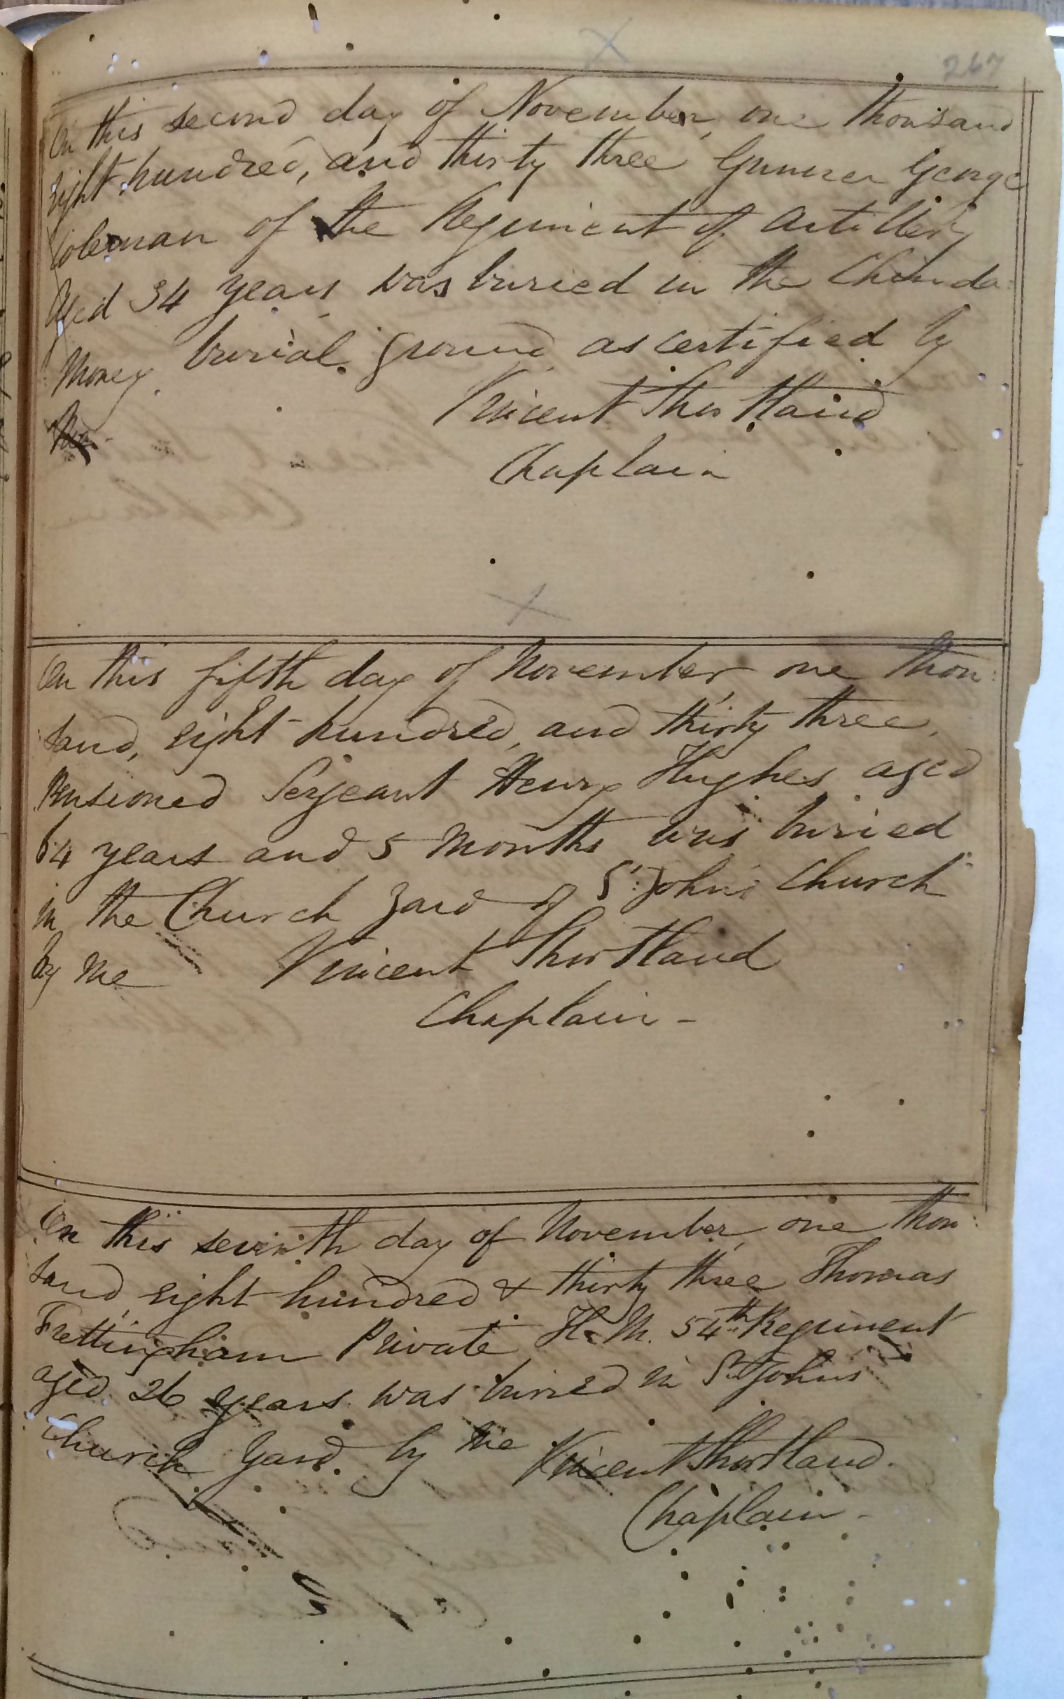 267
On this second day of November, one thousand
eight hundred, and thirty three Gunner George
Coleman of the Regiment of Artillery
Aged 34 years was buried in the Chinda
Money burial ground as certified by
Vincent Shortland
Chaplain
On this fifth day of November one thou:
sand, eight hundred, and thirty three,
Pensioned Serjeant Henry Hughes aged
64 years and 5 Months was buried
in the Church Yard of St. John's Church
by me Vincent Shortland
Chaplain -
On this seventh day of November, one thou:
sand eight hundred & thirty three Thomas
Frettingham Private H. M. 54th Regiment
aged 26 years was buried in St. John's
Church Yard by me Vincent Shortland.
Chaplain -